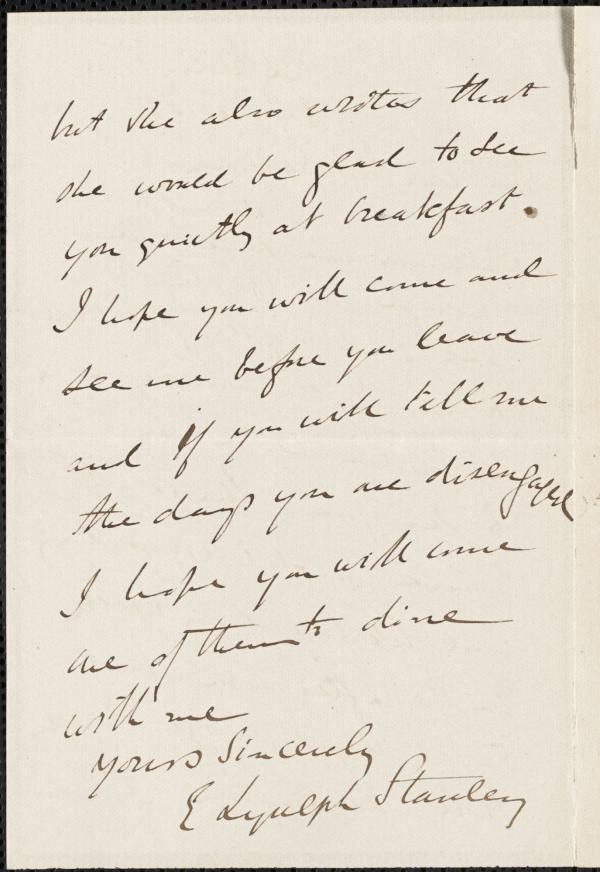 but she also writes that
she would be glad to see
you quietly at breakfast.
I hope you will come and
see me before you leave
and if you will tell me
the days you are disengaged
I hope you will come
one of them to dine
with me
Yours Sincerely
E Lyulph Stanley